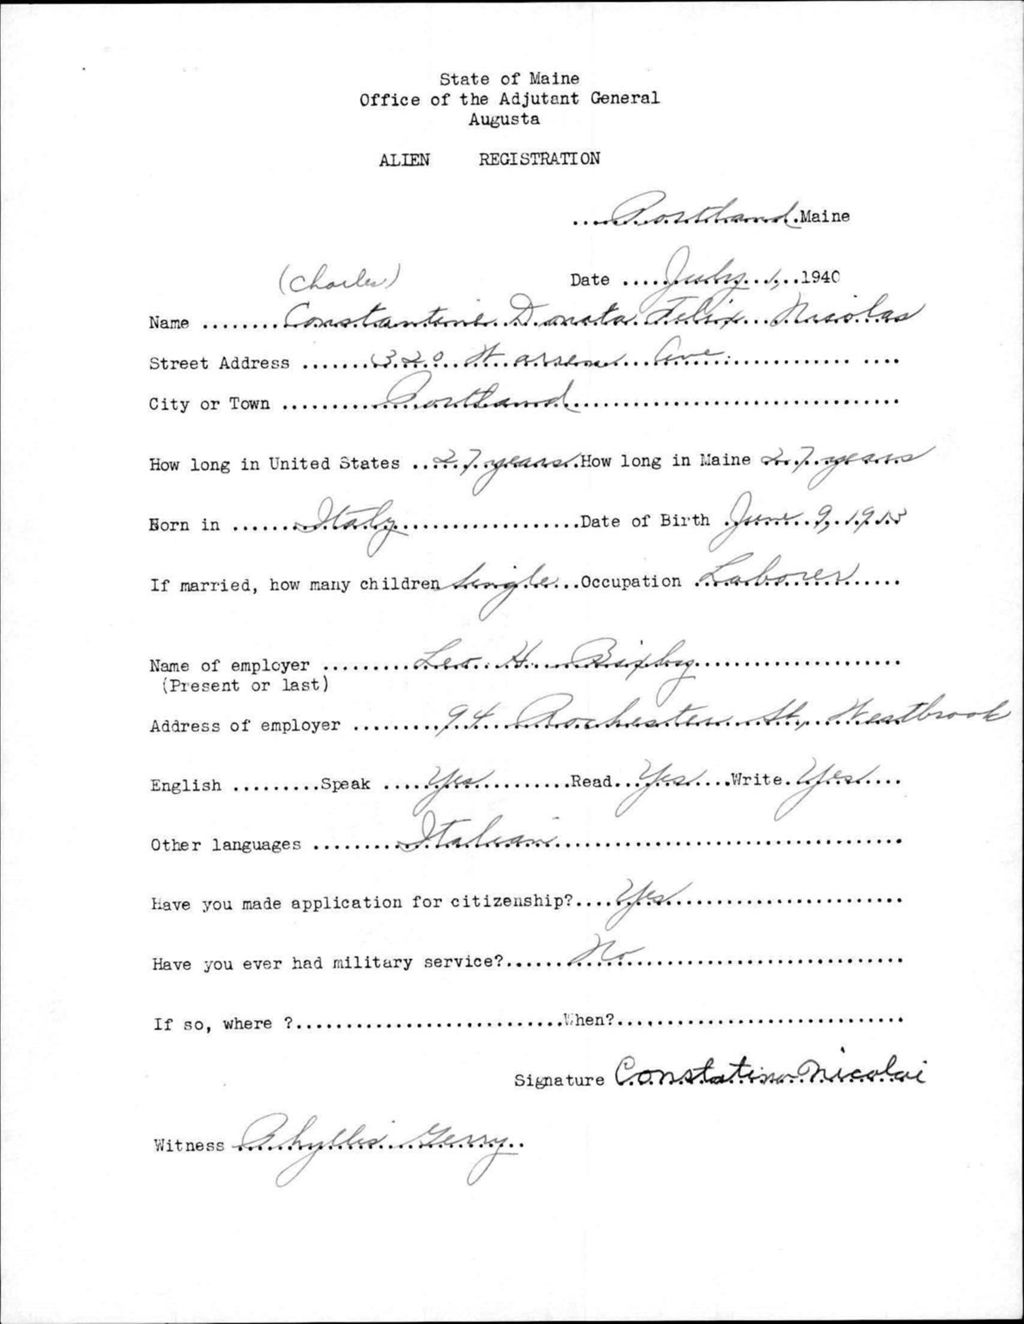 State of Maine
Office of the Adjutant General
Augusta
ALIEN REGISTRATION
Portland Maine
Date July 1, 1940
(Charles)
Name Constantine Donata Felix Nicolas
Street Address 320 Warren Ave.
City or Town Portland
How long in United States 27 years How long in Maine 27 years
Born in Italy Date of Birth June 9, 1913
If married, how many children Single Occupation Laborer
Name of employer Leo H. Bixby
(Present or last)
Address of employer 94 Rochester St., Westbrook
English Speak Yes Read Yes Write Yes
Other languages Italian
Have you made application for citizenship? Yes
Have you ever had military service? No
If so, where ? When?
Signature Constatino Nicolai
Witness Phyllis Gerry